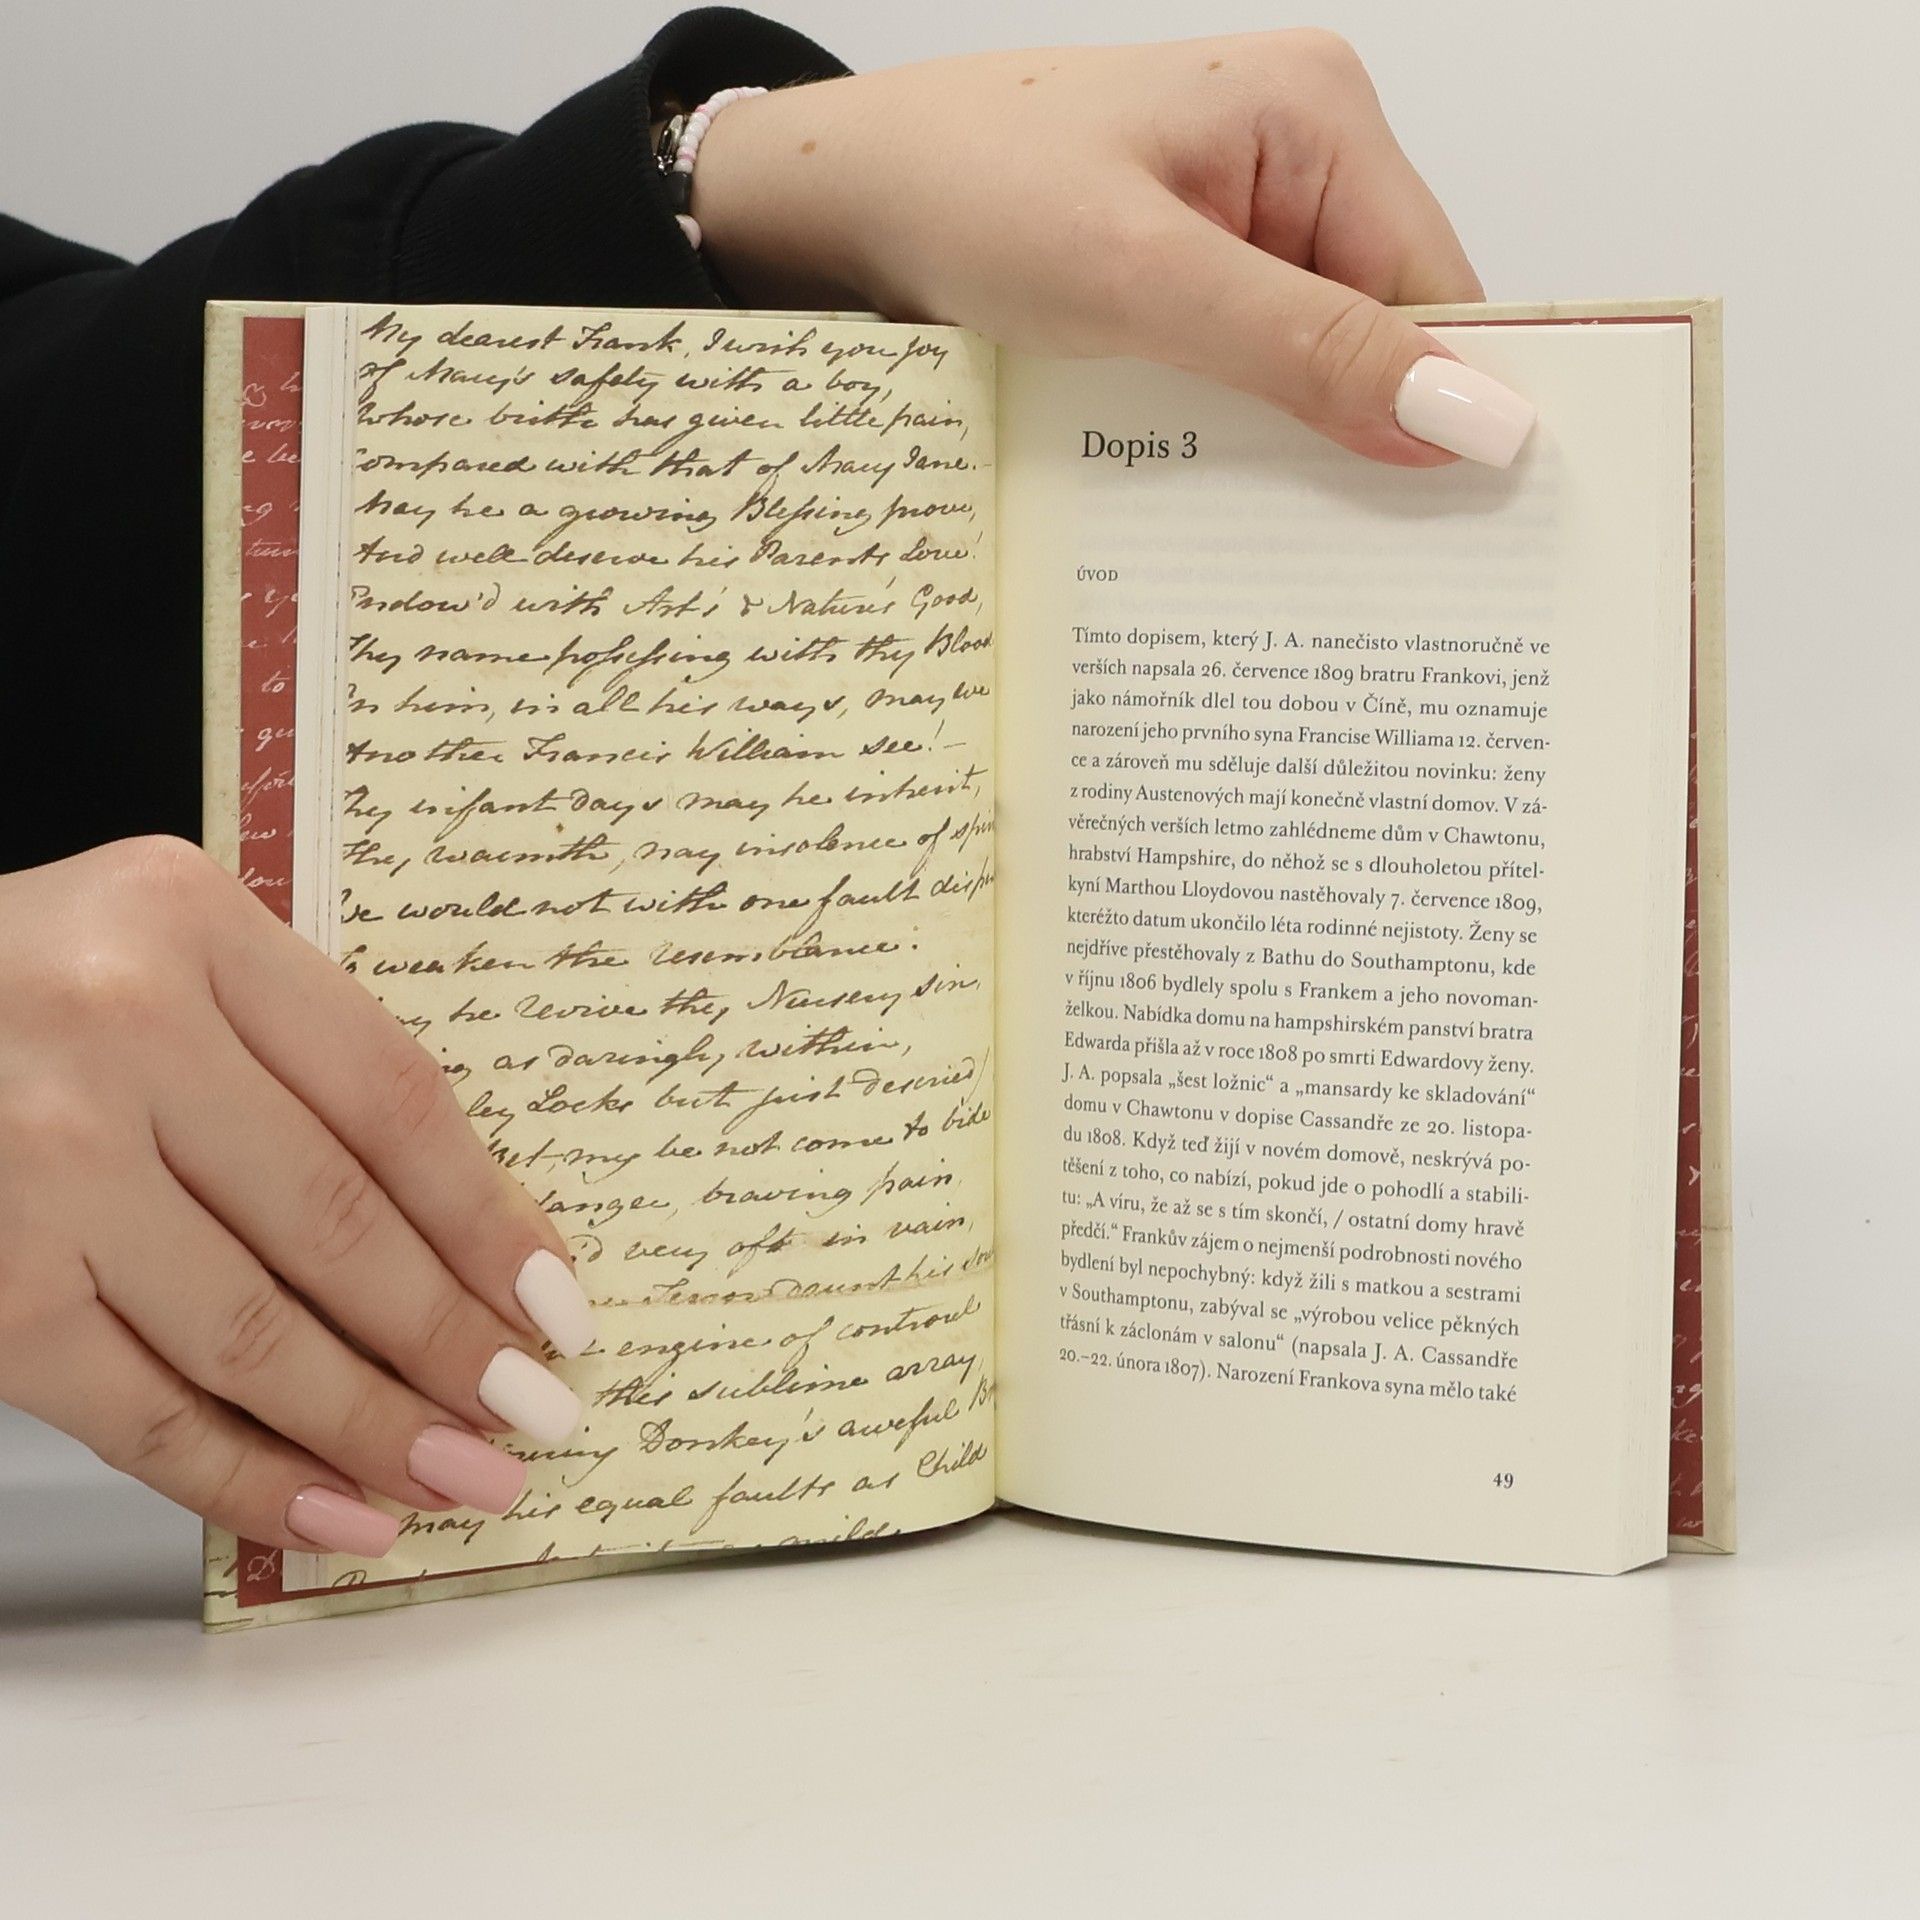 My dearest Frank, I wish you joy
Of Mary's safety with a boy,
Whose birth has given little pain,
Compared with that of Mary Jane.-
May he a growing Blessing prove,
And well deserve his Parents Love!
Endow'd with Art's & Nature's Good,
Thy name possessing with thy Blood
In him, in all his ways, may we
Another Francis William see!-
Thy infant days may he inherit,
Thy warmth, nay insolence of
We would not with one fault
To weaken the resemblance.
he revive thy Nursery sin,
as daringly within,
Locks but just descried)
Bet, my be not come to bide
danger, braving pain,
very oft in vain,
Terror daunt his
engine of controul
this sublime array,
Donkey's aweful
may his equal faults as Child
Dopis 3
ÚVOD
Tímto dopisem, který J. A. nanečisto vlastnoručně ve
verších napsala 26. července 1809 bratru Frankovi, jenž
jako námořník dlel tou dobou v Číně, mu oznamuje
narození jeho prvního syna Francise Williama 12. červen-
ce a zároveň mu sděluje další důležitou novinku: ženy
z rodiny Austenových mají konečně vlastní domov. V zá-
věrečných verších letmo zahlédneme dům v Chawtonu,
hrabství Hampshire, do něhož se s dlouholetou přítel-
kyní Marthou Lloydovou nastěhovaly 7. července 1809,
kteréžto datum ukončilo léta rodinné nejistoty. Ženy se
nejdříve přestěhovaly z Bathu do Southamptonu, kde
v říjnu 1806 bydlely spolu s Frankem a jeho novoman-
želkou. Nabídka domu na hampshirském panství bratra
Edwarda přišla až v roce 1808 po smrti Edwardovy ženy.
J. A. popsala „šest ložnic“ a „mansardy ke skladování“
domu v Chawtonu v dopise Cassandře ze 20. listopa-
du 1808. Když teď žijí v novém domově, neskrývá po-
těšení z toho, co nabízí, pokud jde o pohodlí a stabili-
tu: „A víru, že až se s tím skončí, / ostatní domy hravě
předčí.“ Frankův zájem o nejmenší podrobnosti nového
bydlení byl nepochybný: když žili s matkou a sestrami
v Southamptonu, zabýval se „výrobou velice pěkných
třásní k záclonám v salonu“ (napsala J. A. Cassandře
20.–22. února 1807). Narození Frankova syna mělo také
49